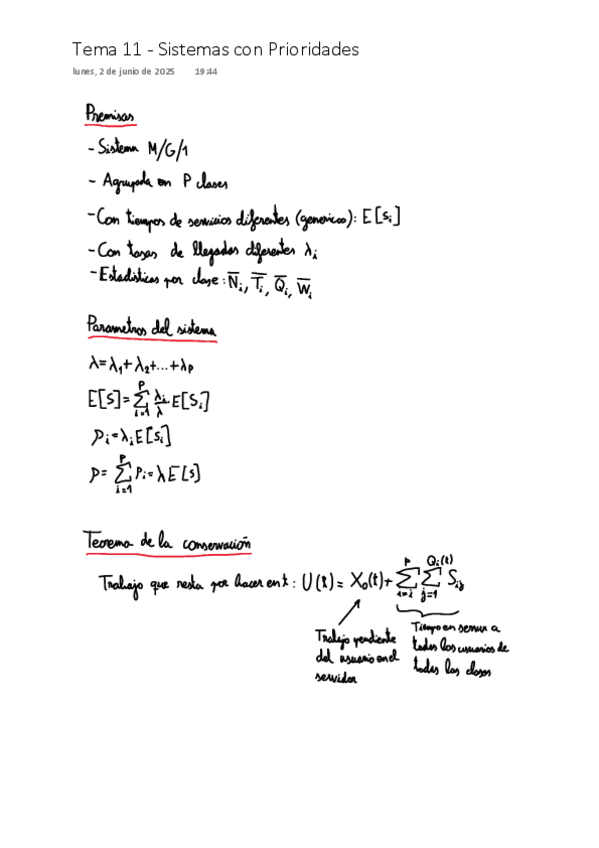 Tema 11 - Sistemas con Prioridades
lunes, 2 de junio de 2025 19:44
Premisas
- Sistema M/G/1
- Agrupada en P clases
- Con tiempos de servicios diferentes (generico): E[Si]
- Con tasas de llegadas diferentes λi
- Estadisticas por clase: N̅i, T̅i, Q̅i, W̅i
Parametros del sistema
λ=λ1+λ2+...+λP
E[S]=∑_{i=1}^{P} λi/λ E[Si]
ρi=λiE[Si]
ρ=∑_{i=1}^{P} ρi=λE[S]
Teorema de la conservación
Trabajo que resta por hacer en t: U(t)= X0(t)+∑_{i=1}^{P} ∑_{j=1}^{Qi(t)} Sij
Trabajo pendiente
del usuario en el
servidor
Tiempo en servir a
todos los usuarios de
todas las clases